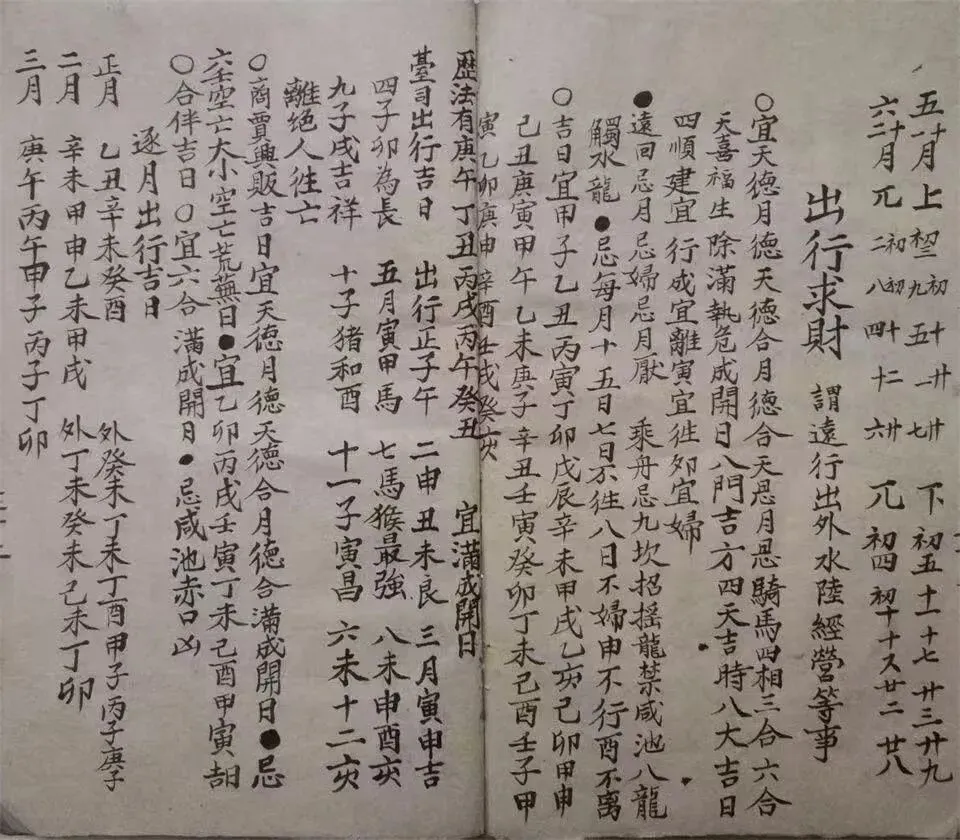 五十一月 上 初三 初九 十五 廿一 廿七 下 初五 十一 十七 廿三 廿九
六十二月 兀 初二 初八 十四 十二 廿六 兀 初四 初十 十六 廿二 廿八
出行求財 謂遠行出外水陸經營等事
○宜天德月德天德合月德合天恩月恩騎馬四相三合六合
天喜福生 除滿執危成開日八門吉方四天吉時八大吉日
四順建宜行成宜離寅宜徃夘宜婦
●遠回忌月忌婦忌月厭 乘舟忌九坎招摇龍禁咸池八龍
觸水龍●忌每月十五日七日不徃八日不婦申不行酉不离
○吉日宜甲子乙丑丙寅丁卯戊辰辛未甲戌乙亥己卯甲申
己丑庚寅甲午乙未庚子辛丑壬寅癸卯丁未己酉壬子甲
寅乙卯庚申辛酉壬戌癸亥
歷法有庚午丁丑丙戌丙午癸丑 宜滿成開日
臺司出行吉日 出行正子午 二申丑未良 三月寅申吉
四子卯為長 五月寅甲馬 七馬猴最強 八未申酉亥
九子戌吉祥 十子猪和酉 十一子寅昌 六未十二亥
離絕人徃亡
○商賈興販吉日宜天德月德天德合月德合滿成開日●忌
六壬空亡大小空亡荒蕪日●宜乙卯丙戌壬寅丁未己酉甲寅
○合伴吉日○宜六合 滿成開日●忌咸池赤口凶
逐月出行吉日
正月 乙丑辛未癸酉 外癸未丁未丁酉甲子丙子庚子
二月 辛未甲申乙未甲戌 外丁未癸未己未丁卯
三月 庚午丙午甲子丙子丁卯